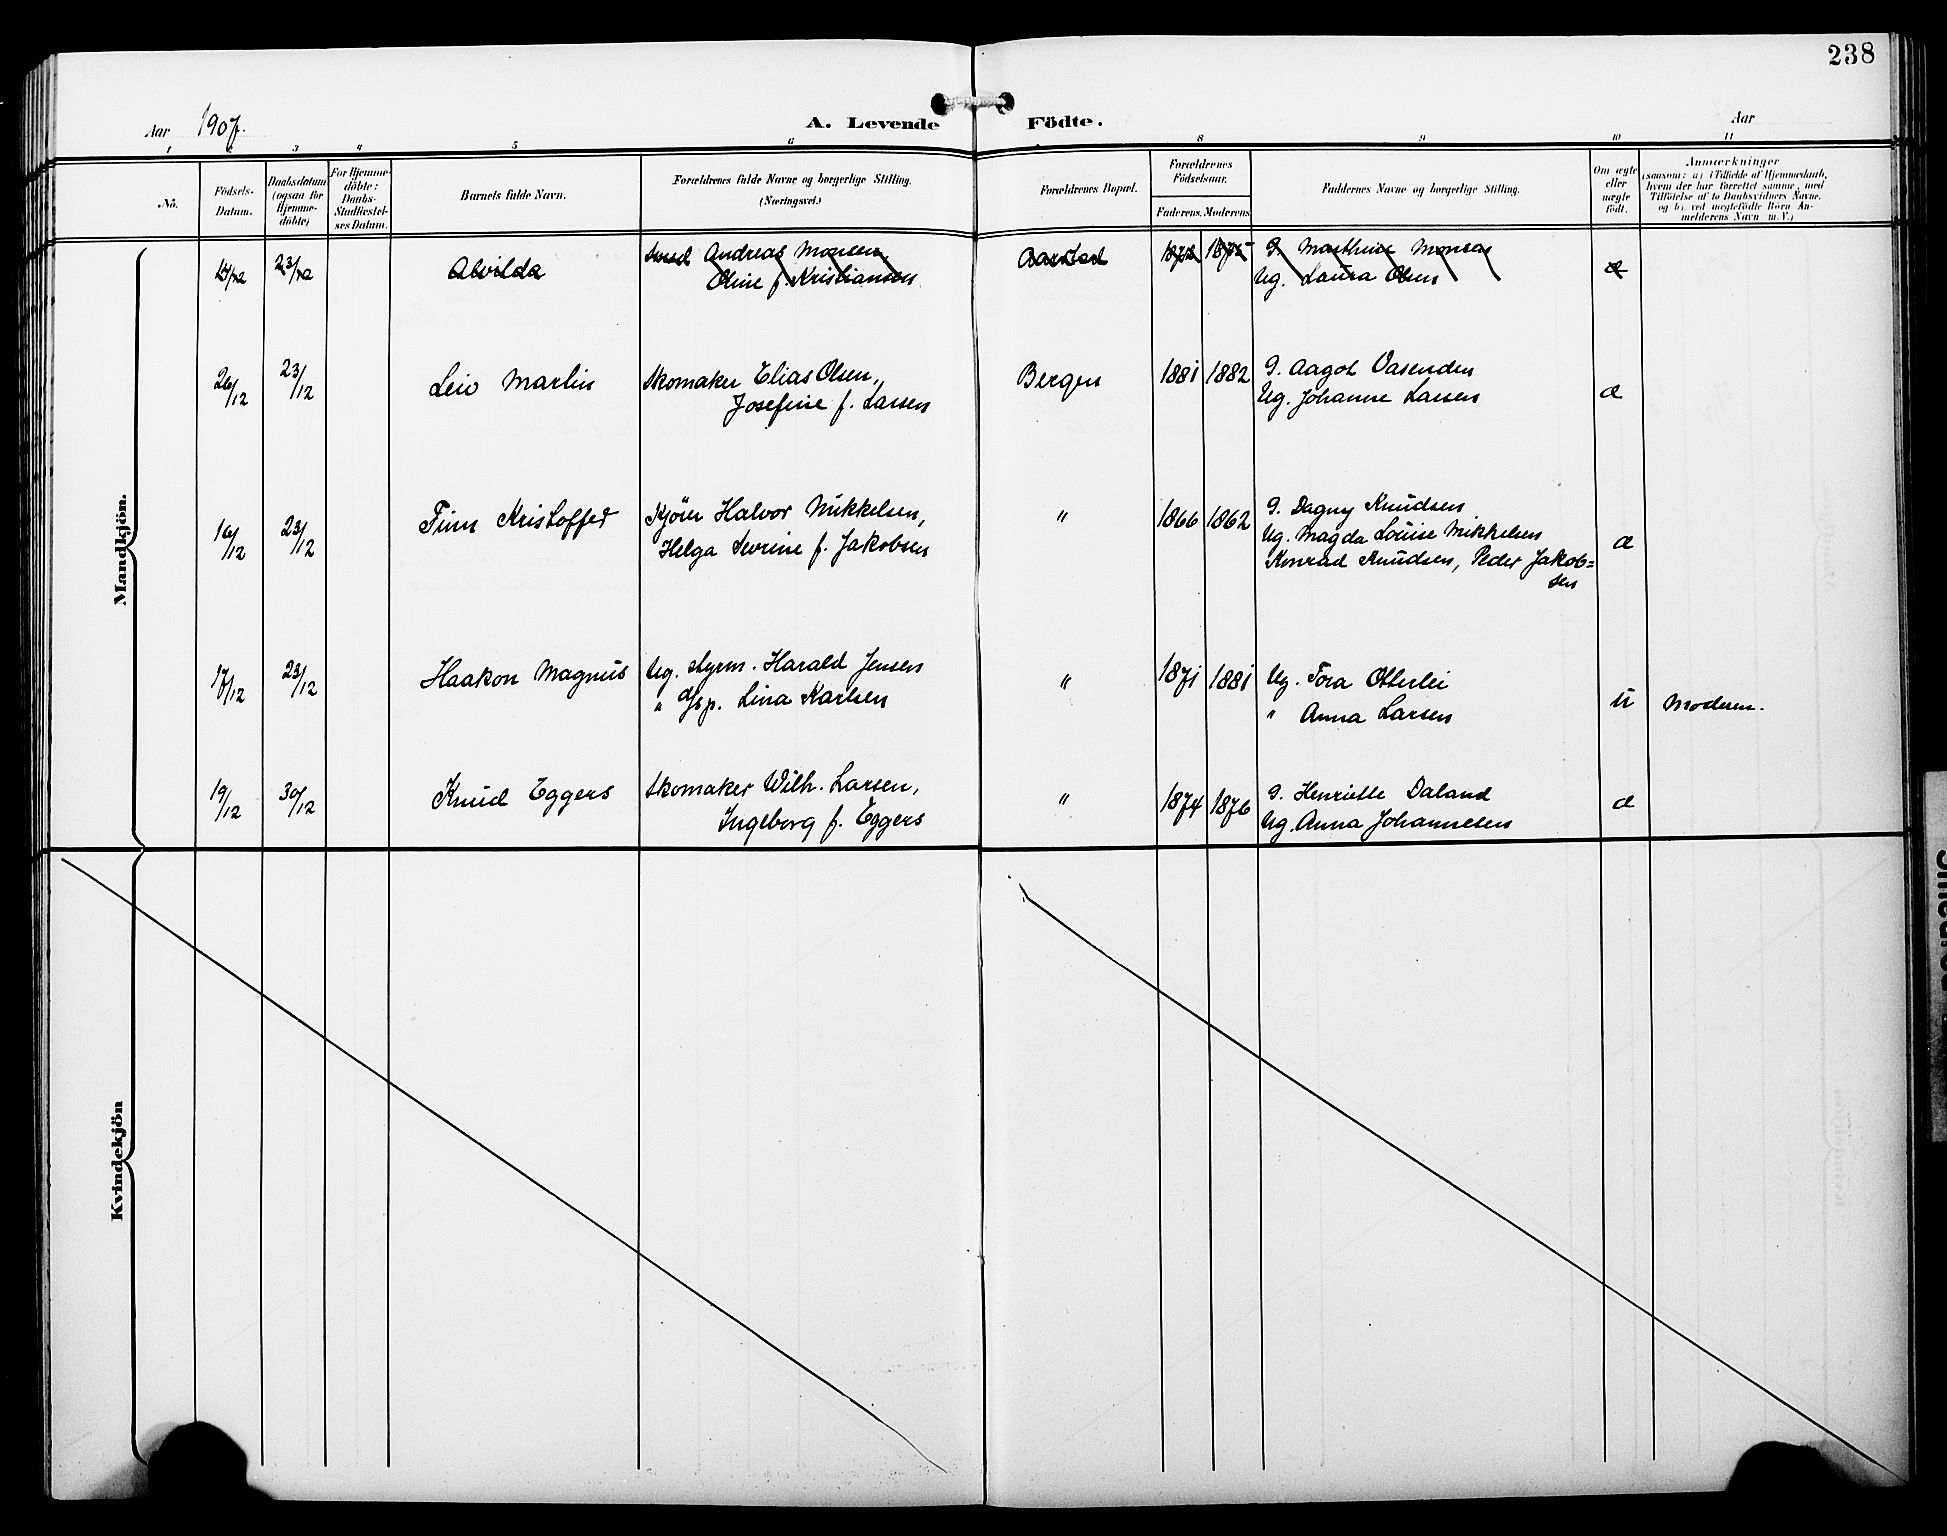 238
Aar 1907.
A. Levende Födte.
Aar
1 2 3 4 5 6 8 9 10 11
No.
Födsels-Datum.
Daabsdatum (ogsaa for Hjemme-döbte)
For Hjemme-döbte: Daabs-Stadfæstel-ses Datum.
Barnets fulde Navn.
Forældrenes fulde Navne og borgerlige Stilling. (Næringsvei.)
Forældrenes Bopæl.
Forældrenes Födselsaar.
Faderens. Moderens.
Faddernes Navne og borgerlige Stilling.
Om ægte eller uægte födt.
Anmærkninger
(saasom: a) i Tilfælde af Hjemmedaab,
hvem der har forrettet samme, med
Tilföielse af to Daabsvidners Navne,
og b) ved uægtefödte Börn An-
melderens Navn m. V.)
Mandkjön.
23/12 Alvilda Smed Andreas Monsen, Aarstad 1872 1875 G. Marthine Monsen
Oline f. Kristiansen Ug. Laura Olsen
26/12 23/12 Leiv Martin Skomaker Elias Olsen, Bergen 1881 1882 G. Aagot Vasenden
Josefine f. Larsen Ug. Johanne Larsen
16/12 23/12 Finn Kristoffer Kjörer Halvor Mikkelsen, " 1866 1862 G. Dagny Knudsen
Helga Sevrine f. Jakobsen Ug. Magda Louise Mikkelsen
Konrad Knudsen, Peder Jakob=
sen
17/12 23/12 Haakon Magnus Ug. Styrm. Harald Jensen " 1871 1881 Ug. Tora Otterlei
" Lina Karlsen " Anna Larsen u Moderen.
19/12 30/12 Knud Eggers Skomaker Wilh. Larsen, " 1874 1876 G. Henriette Daland
Ingeborg f. Eggers Ug. Anna Johannesen
Kvindekjön